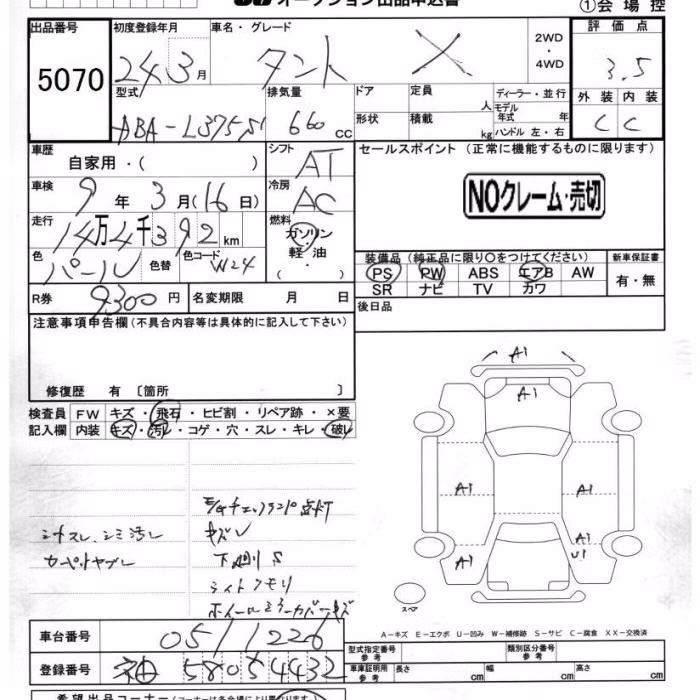 オークション出品申込書 ①会場控
出品番号 初度登録年月 車名・グレード 2WD・4WD 評価点
5070 24年3月 タント X 3.5
型式 排気量 ドア 定員 人 ディーラー・並行 外装 内装
ABA-L375S 660cc 形状 積載 kg モデル年式 年 ハンドル 左・右 C C
車歴 自家用・( ) シフト AT セールスポイント (正常に機能するものに限ります)
車検 9年3月(16日) 冷房 AC NOクレーム・売切
走行 14万4千392km 燃料 ガソリン・軽油 ( ・ )
色 パール 色替 色コード W24 装備品 (純正品に限り○をつけてください) 新車保証書
PS PW ABS エアB AW 有・無
SR ナビ TV カワ
R券 9300円 名変期限 月 日 後日品
注意事項申告欄 (不具合内容等は具体的に記入して下さい)
修復歴 有 〔箇所 〕
検査員 FW キズ・飛石・ヒビ割・リペア跡・×要
記入欄 内装 キズ・汚レ・コゲ・穴・スレ・キレ・破レ
A1
A1
A1 A1
A1 A1
U1
スペア
シートスレ、シミ汚レ
カーペットヤブレ
チェックランプ点灯
キズレ
下廻りS
ライトクモリ
ホイールミラーカバーキズ
A-キズ E-エクボ U-凹み W-補修跡 S-サビ C-腐食 XX-交換済
車台番号 0511226
登録番号 580 4432
型式指定番号 参考 類別区分番号 参考
車庫証明用 参考 長さ cm 幅 cm 高さ cm
希望出品コーナー